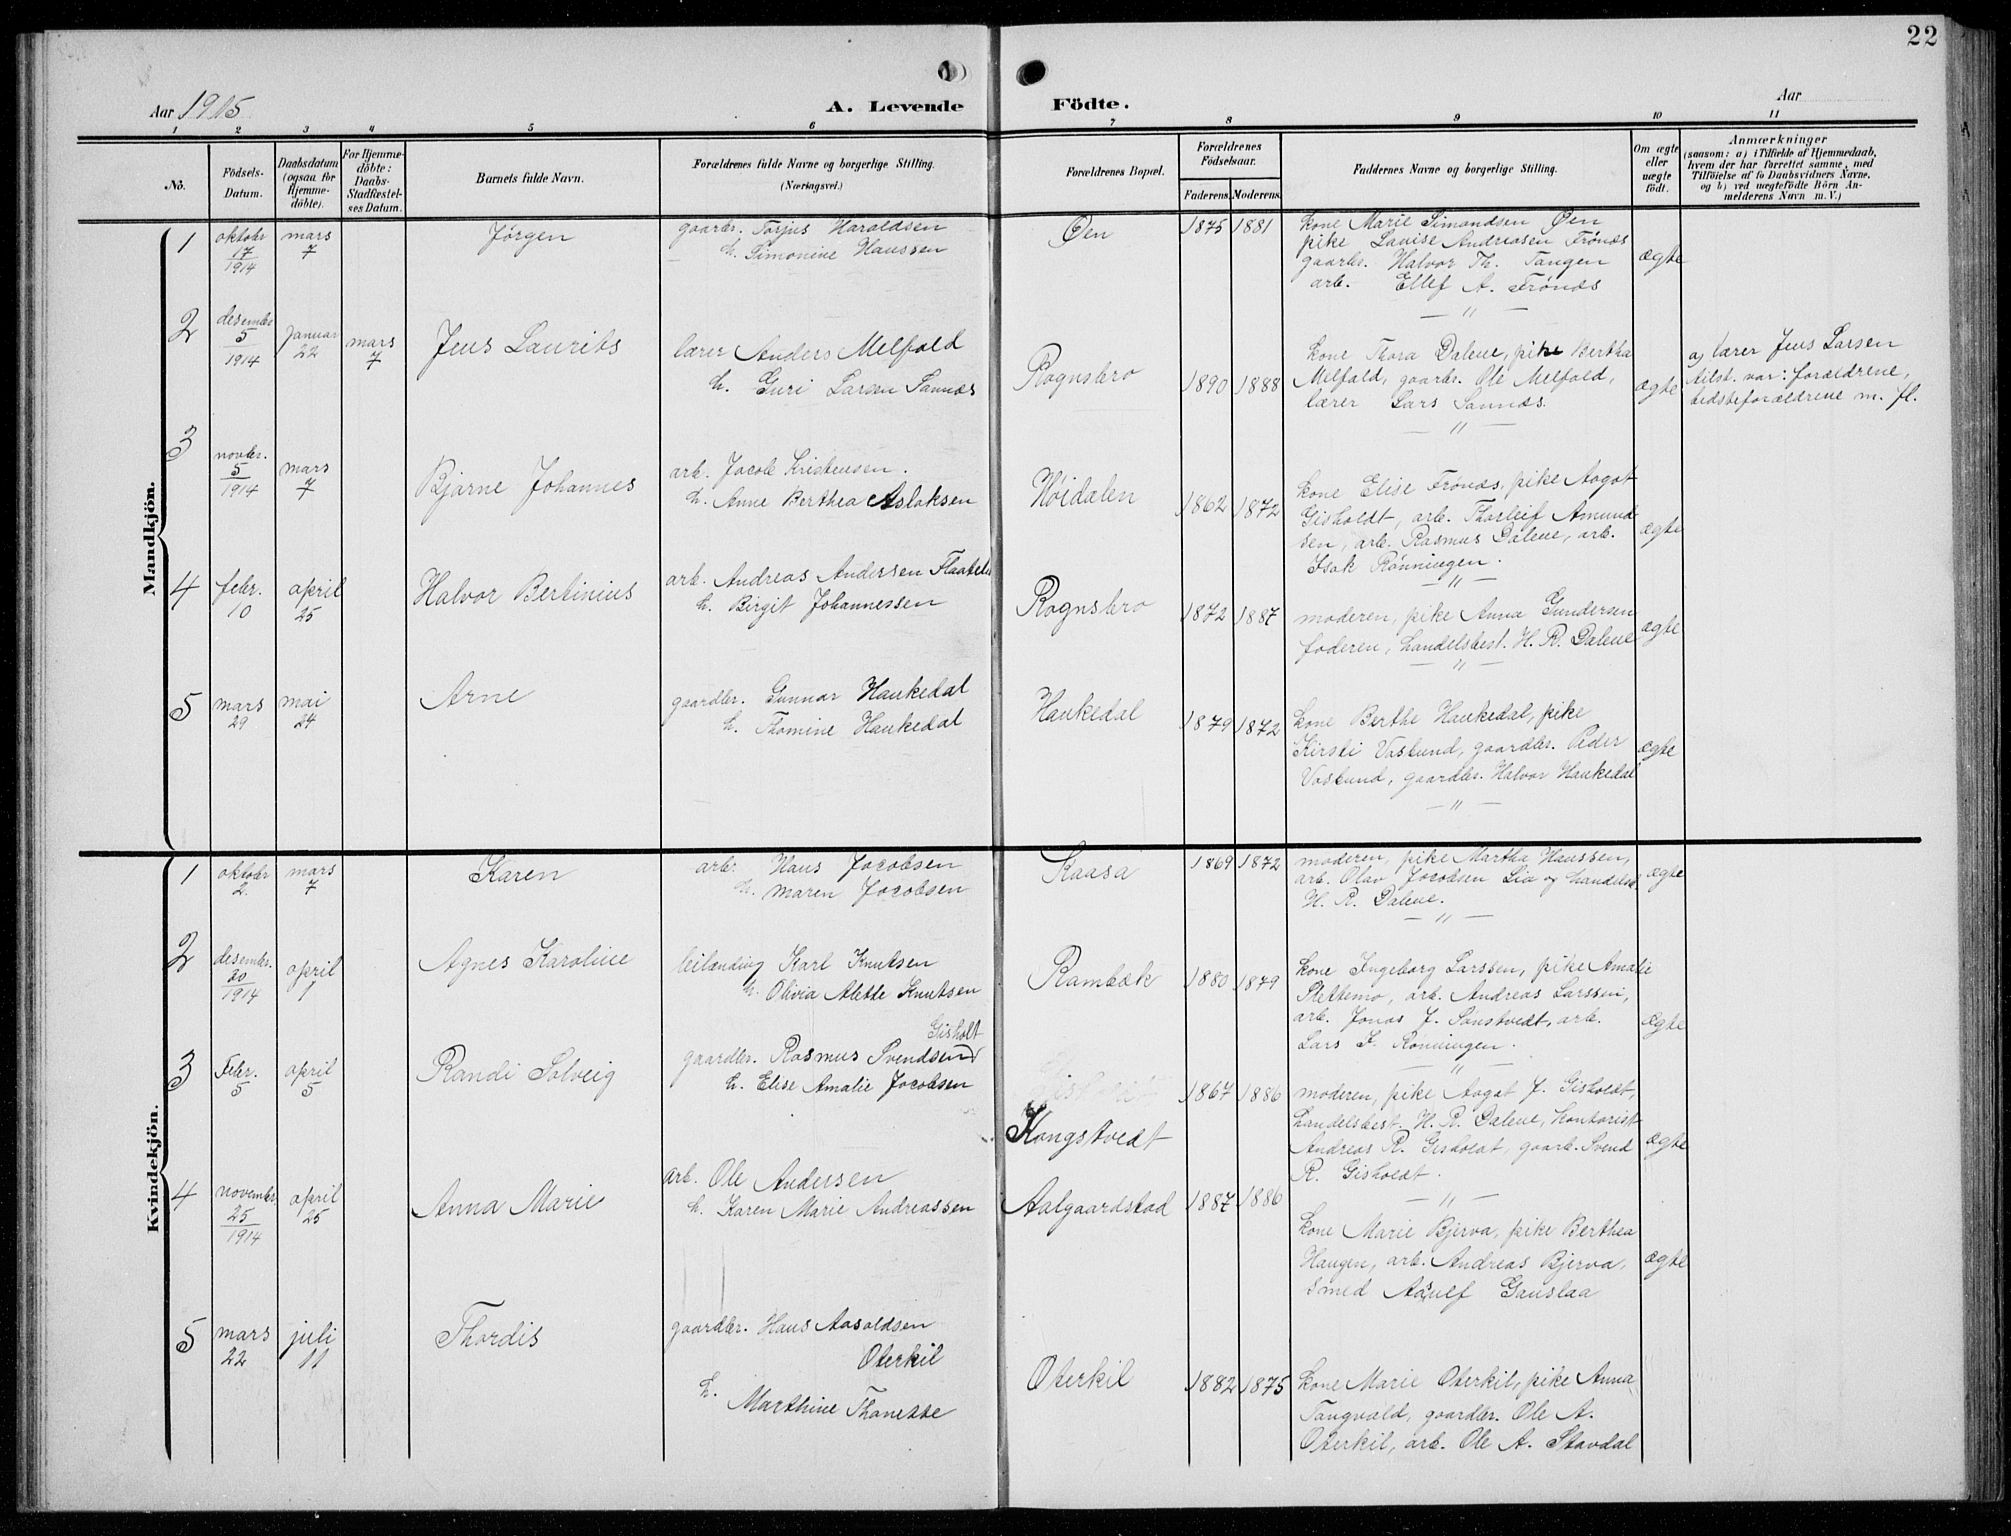 22
Aar 1915
A. Levende Födte.
Aar
1 2 3 4 5 6 7 8 9 10 11
No.
Födsels-Datum.
Daabsdatum (ogsaa for Hjemme-döbte).
For Hjemme-döbte: Daabs-Stadfæstel-ses Datum.
Barnets fulde Navn.
Forældrenes fulde Navne og borgerlige Stilling. (Næringsvei.)
Forældrenes Bopæl.
Forældrenes Födselsaar.
Faderens. Moderens.
Faddernes Navne og borgerlige Stilling.
Om ægte eller uægte födt.
Anmærkninger
(saasom: a) i Tilfælde af Hjemmedaab,
hvem der har forrettet samme, med
Tilföielse af to Daabsvidners Navne.
og b) ved uægtefödte Börn An-
melderens Navn m. V.)
Mandkjön.
1 oktober 17/1914 mars 7 Jørgen
gaarbr. Torjus Haroldsen
h. Simonine Hanssen
Øen 1875 1881
kone Marie Simondsen Øen
pike Lauise Andreasen Trönæs
gaarbr. Halvor Th. Tangen
arb. Ellef A. Trönæs
ægte
— " —
2 desember 5/1914 januar 22 mars 7 Jens Laurits
lærer Anders Melfald
h. Guri Larsen Sannæs
Rognsbro 1890 1888
kone Thora Dalene, pike Bertha
Melfald, gaarbr. Ole Melfald,
lærer Lars Sannæs.
ægte
a) lærer Jens Larsen
tilst. var: forældrene,
bedsteforældrene m. fl.
— " —
3 novbr. 5/1914 mars 7 Bjarne Johannes
arb. Jacob Kristensen.
h. Anne Berthea Aslaksen
Høidalen 1862 1872
kone Elise Trönæs, pike Aagot
Gisholdt, arb. Thorleif Amund-
sen, arb. Rasmus Dalene, arb.
Isak Rönningen.
ægte
— " —
4 febr. 10 april 25 Halvor Bertinius
arb. Andreas Andersen Flaatele
h. Birgit Johannessen
Rognsbro 1872 1887
moderen, pike Anna Gundersen
faderen, handelsbest. H. R. Dalene
ægte
— " —
5 mars 29 mai 24 Arne
gaardbr. Gunnar Haukedal
h. Thomine Haukedal
Haukedal 1879 1872
kone Berthe Haukedal, pike
Kirsti Vaslund, gaardbr. Peder
Vaslund, gaardbr. Halvor Haukedal
ægte
— " —
Kvindekjön.
1 oktober 2. mars 7 Karen
arb. Hans Jacobsen
h. Maren Jocobsen
Kaasa 1869 1872
moderen, pike Martha Hanssen,
arb. Olav Jocobsen Lia og handelsb.
H. R. Dalene.
ægte
— " —
2 desember. 20/1914 april 1 Agnes Karoline
leilænding Karl Knutsen
h. Olivia Alette Knutsen
Rambæk 1880 1879
kone Ingeborg Larssen, pike Amalie
Slettemo, arb. Andreas Larssen,
arb. Jonas J. Sanstvedt, arb.
Lars I. Rönningen.
ægte
— " —
3 Febr. 5 april 5 Randi Solveig
Gisholt
gaardbr. Rasmus Svendsen
h. Elise Amalie Jocobsen
Kongstvedt 1867 1886
moderen, pike Aagot J. Gisholdt,
handelsbest. H. R. Dalene, kontorist
Andreas R. Gisholdt, gaarb. Svend
R. Gisholdt.
ægte
— " —
4 november 25/1914 april 25 Anna Marie
arb. Ole Andersen
h. Karen Marie Andreassen
Aalgaardstad 1887 1886
kone Marie Bjerva, pike Berthea
Haugen, arb. Andreas Bjerva,
smed Asulf Gauslaa
ægte
5 mars 22 juli 11 Thordis
gaardbr. Hans Aasoldsen
Oterkil
h. Marthine Thonette
Oterkil 1882 1875
kone Marie Oterkil, pike Anna
Tangvald, gaardbr. Ole A.
Oterkil, arb. Ole A. Stavdal